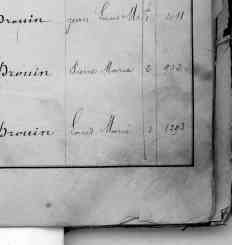 Drouin Jean Louis M. 1 211
Drouin Pierre Marie 2 912
Drouin Louis Marie 1 1293